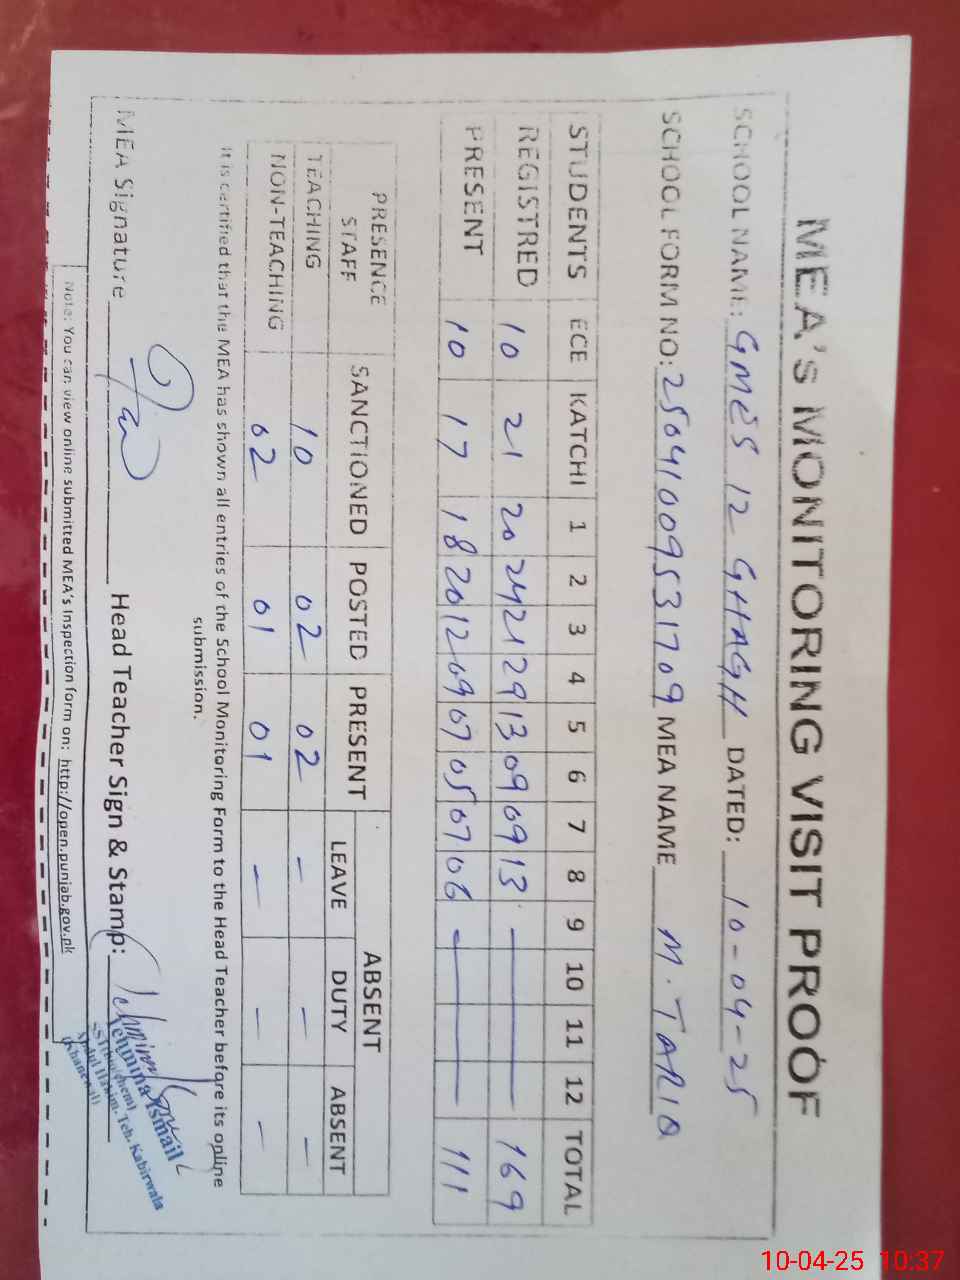 MEA'S MONITORING VISIT PROOF
SCHOOL NAME: GMES 12 GHAGH DATED: 10-04-25
SCHOOL FORM NO: 25041009531709 MEA NAME M. TARIQ
STUDENTS ECE KATCHI 1 2 3 4 5 6 7 8 9 10 11 12 TOTAL
REGISTRED 10 21 20 24 21 29 13 09 09 13 — 169
PRESENT 10 17 18 20 12 09 07 05 07 06 — 111
PRESENCE STAFF SANCTIONED POSTED PRESENT ABSENT
LEAVE DUTY ABSENT
TEACHING 10 02 02 — — —
NON-TEACHING 02 01 01 — — —
It is certified that the MEA has shown all entries of the School Monitoring Form to the Head Teacher before its online
submission.
MEA Signature Head Teacher Sign & Stamp:
Tehmina Ismail
Abdul Hakim, Teh. Kabirwala
(Khanewal)
Note: You can view online submitted MEA's Inspection form on: http://open.punjab.gov.pk
10-04-25 10:37